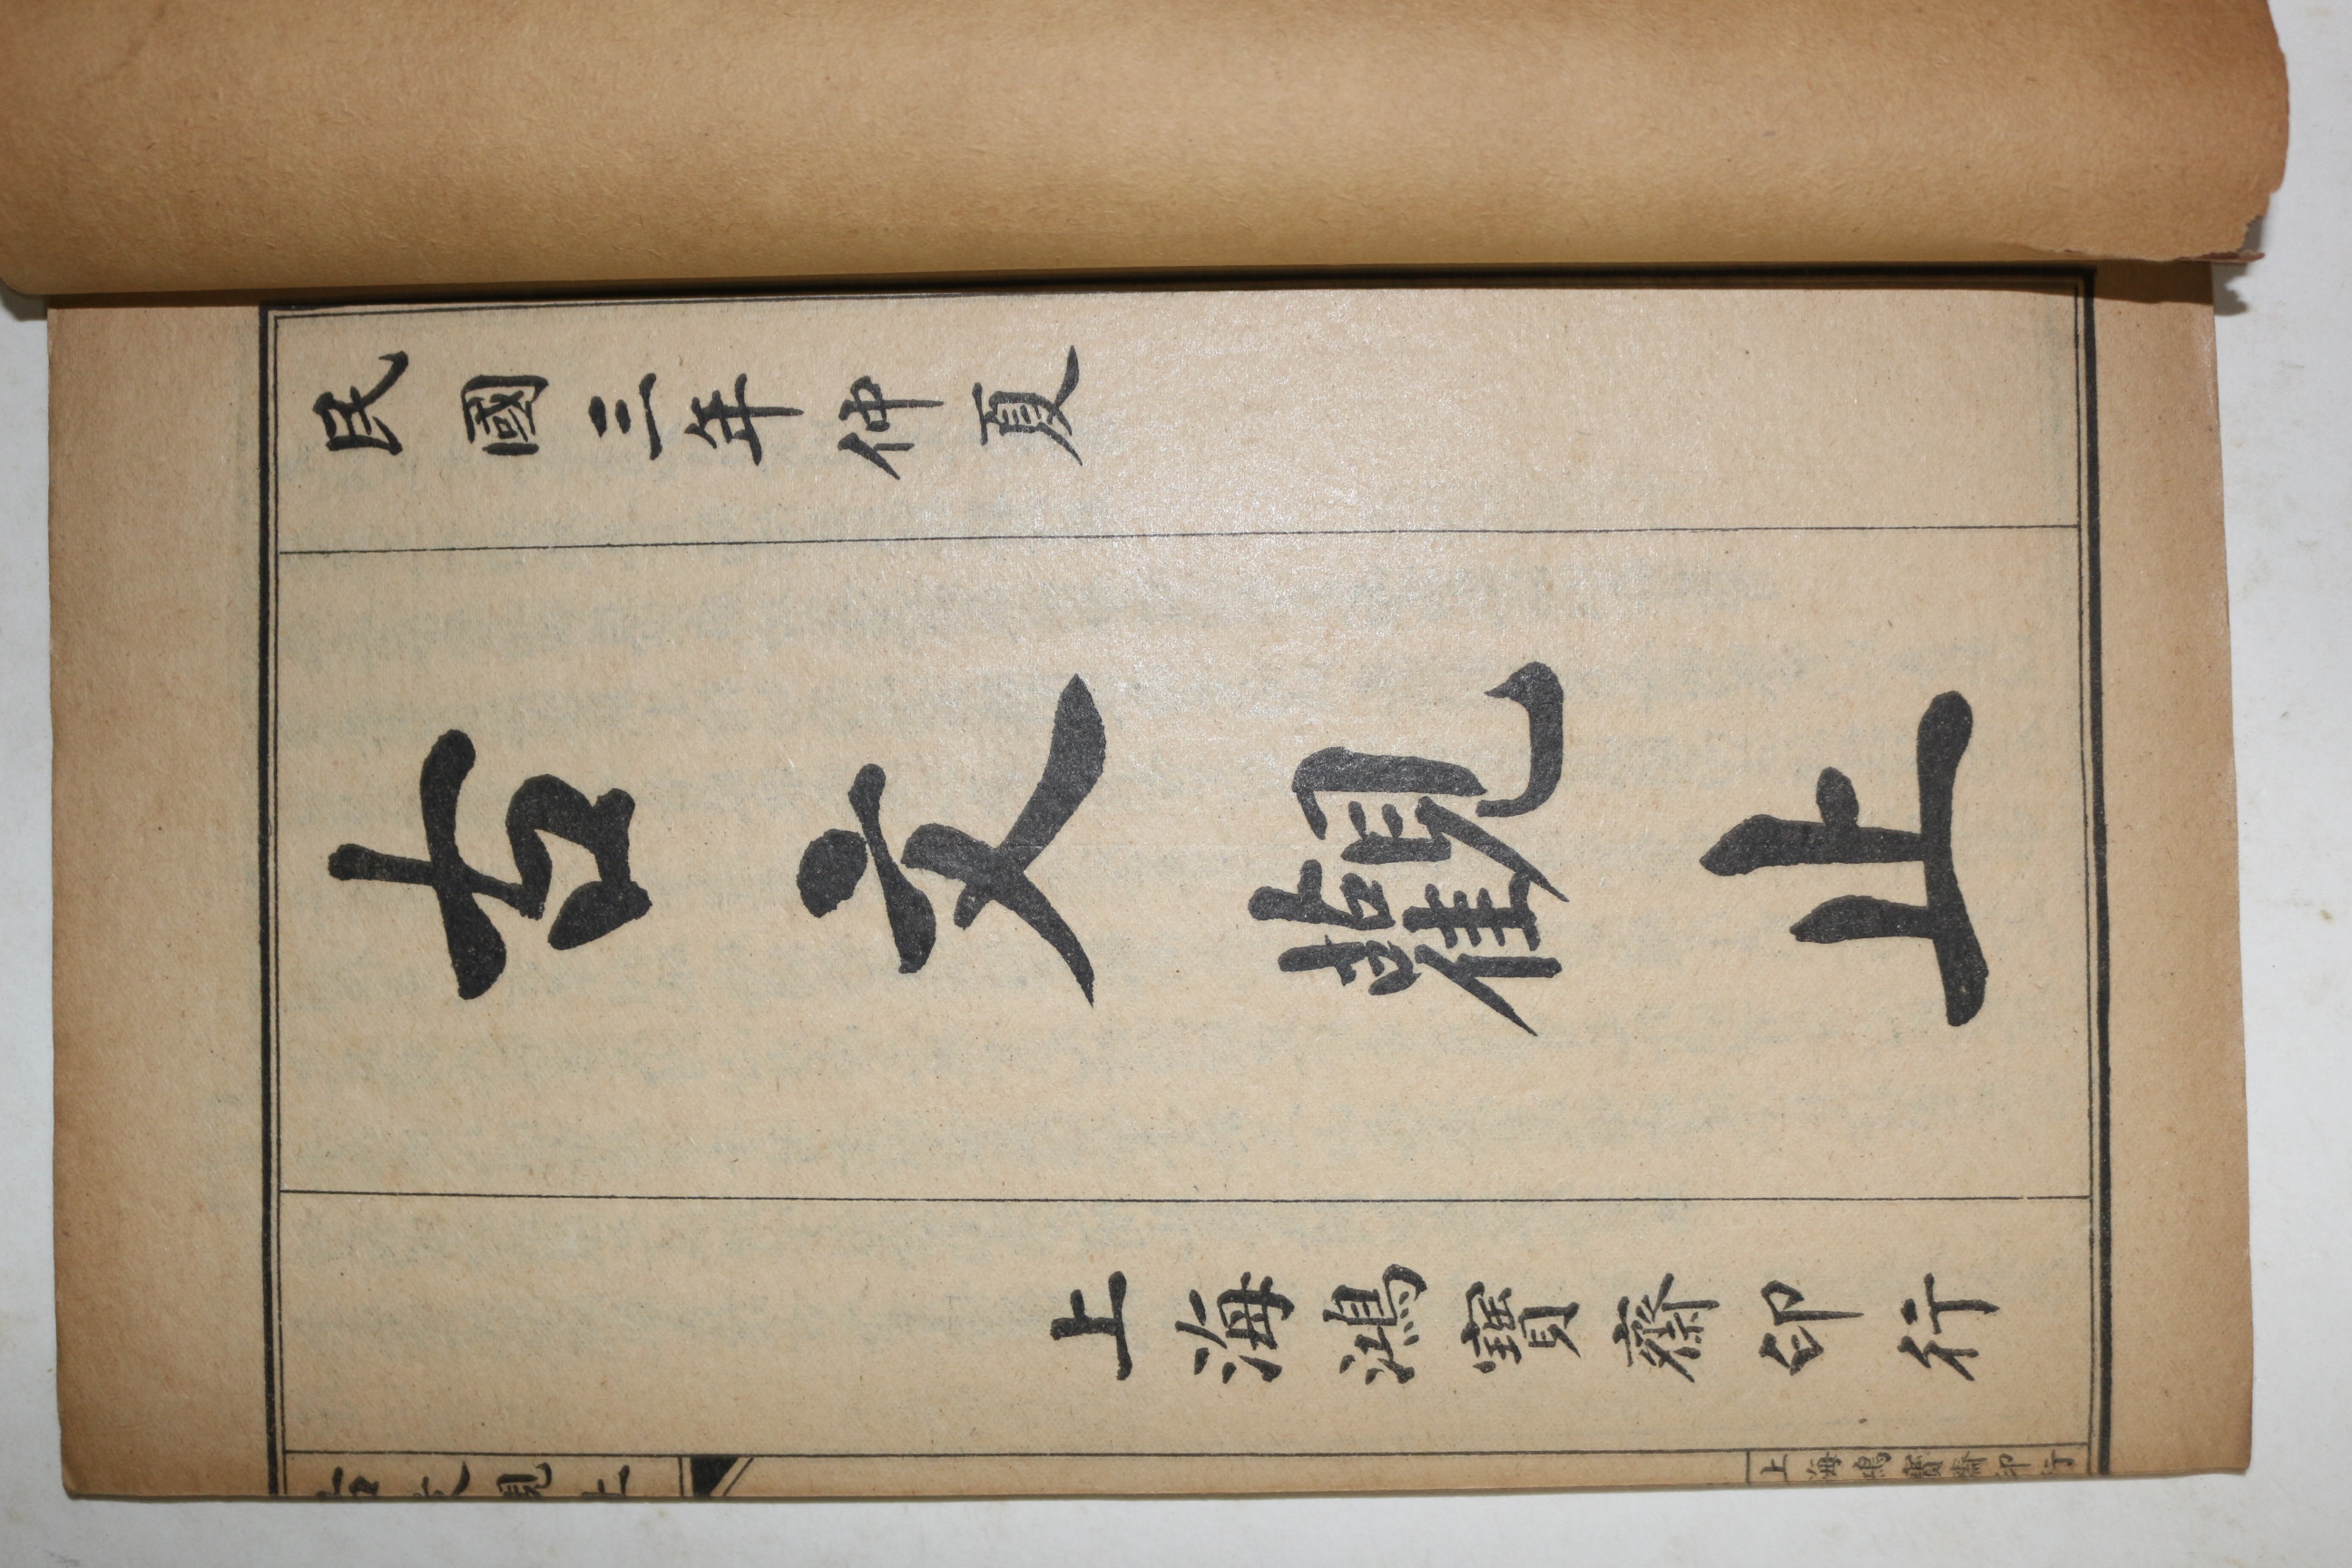 民國三年仲夏
古文觀止
上海鴻寶齋印行
古文觀止
上海鴻寶齋印行